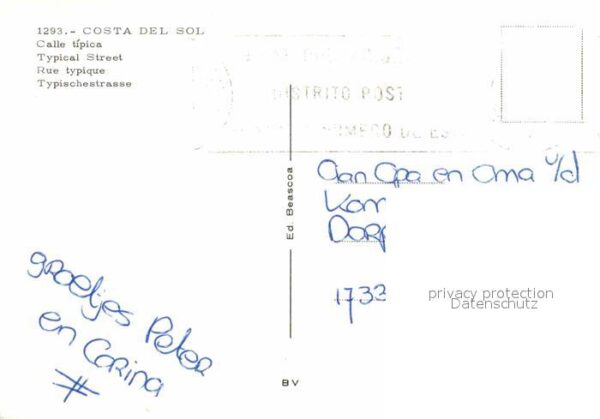 1293.- COSTA DEL SOL
Calle típica
Typical Street
Rue typique
Typischestrasse
DISTRITO POST
NUMERO DE
Ed. Beascoa
Aan Opa en Oma v/d
Korr
Dorp
1733
privacy protection
Datenschutz
groetjes Peter
en Carina
BV